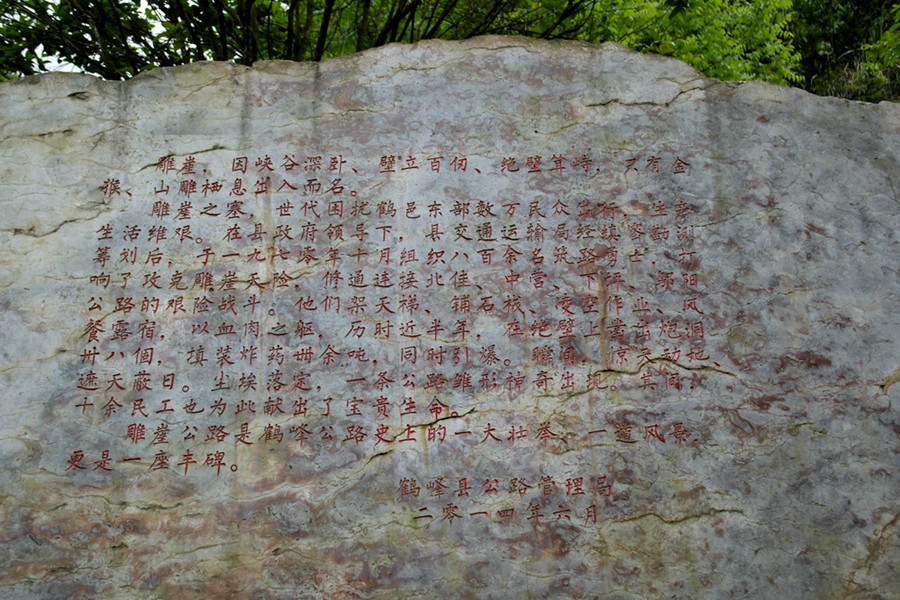 雕崖，因峡谷深卧、壁立百仞、绝壁耸峙，只有金
猴、山雕栖息出入而名。
雕崖之塞，世代困扰鹤邑东部数万民众出行，生产
生活维艰。在县政府领导下，县交通运输局经缜密勘测
筹划后，于一九七零年十月组织八百余名筑路勇士，打
响了攻克雕崖天险，修通连接北佳、中营、下坪、邬阳
公路的艰险战斗。他们架天梯、铺石栈、凌空作业、风
餐露宿，以血肉之躯，历时近半年，在绝壁上凿出炮洞
卅八個，填装炸药卌余吨，同时引爆。瞬间，惊天动地，
遮天蔽日。尘埃落定，一条公路雏形神奇出现。其间，
十余民工也为此献出了宝贵生命。
雕崖公路是鹤峰公路史上的一大壮举、一道风景，
更是一座丰碑。
鹤峰县公路管理局
二零一四年六月